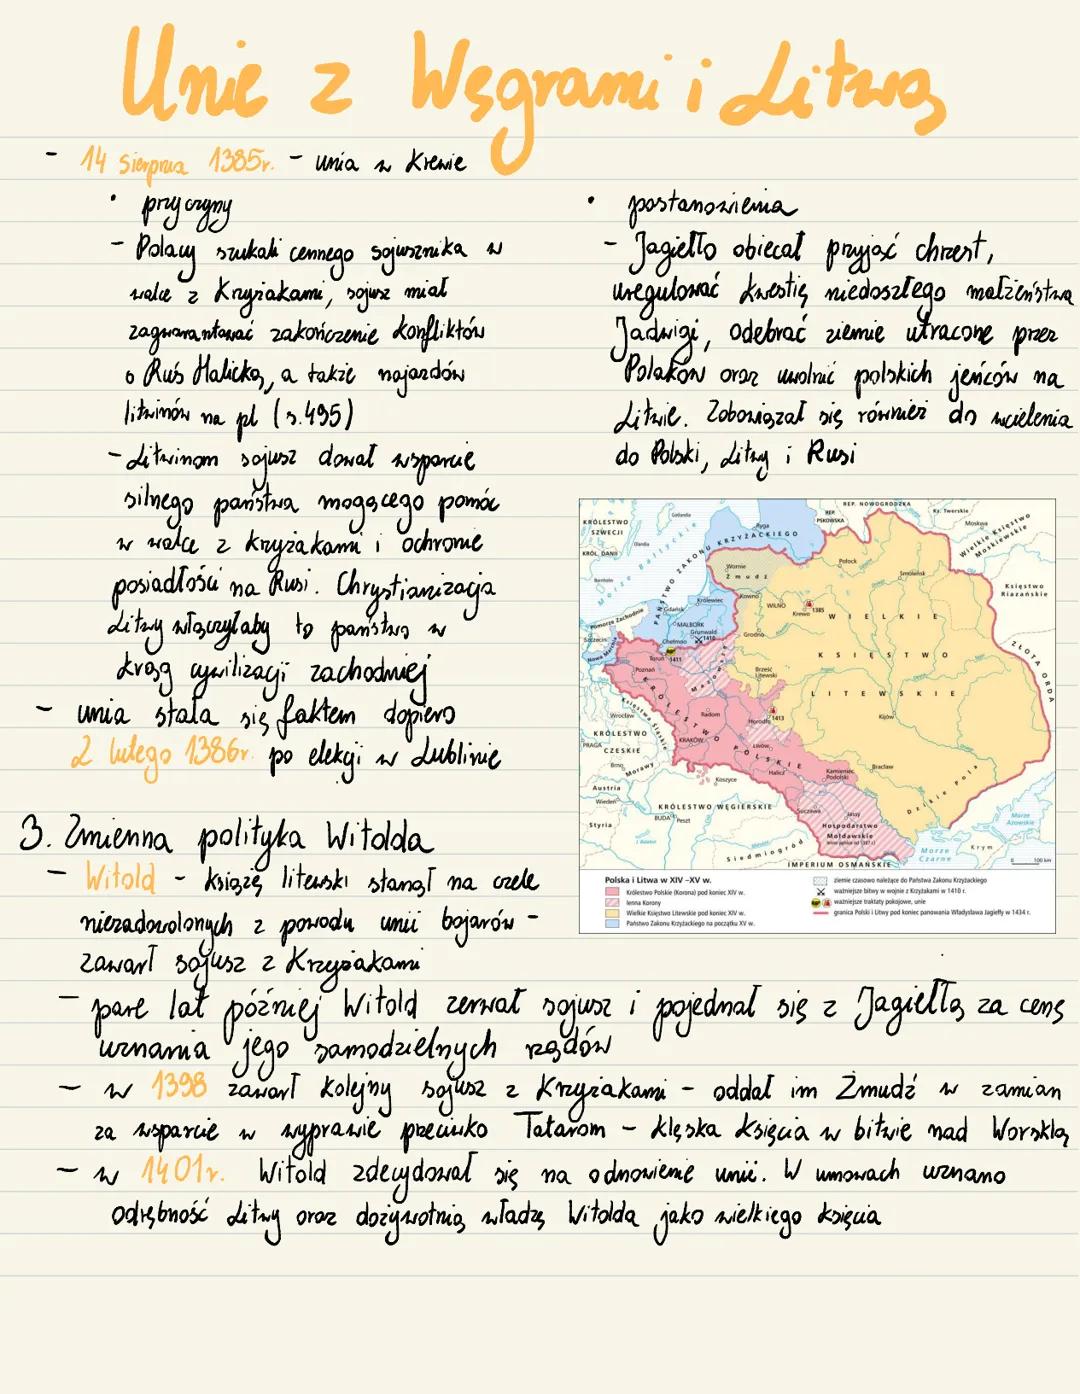 Unie z Węgrami i Litwą
- 14 Sierpnia 1385r. - unia w Krewie
• przyczyny
- Polacy szukali cennego sojusznika w
walce z Krzyżakami, sojusz miał
zagwarantować zakończenie konfliktów
o Ruś Halicką, a także najazdów
litwinów na pl (s.495)
- Litwinom sojusz dawał wsparcie
silnego państwa mogącego pomóc
w walce z krzyżakami i ochronie
posiadłości na Rusi. Chrystianizacja
Litwy włączyłaby to państwo w
krąg cywilizacji zachodniej
- unia stała się faktem dopiero
2 lutego 1386r. po elekcji w Lublinie
• postanowienia
- Jagiełło obiecał przyjąć chrzest,
uregulować kwestię niedoszłego małżeństwa
Jadwigi, odebrać ziemie utracone przez
Polaków oraz uwolnić polskich jeńców na
Litwie. Zobowiązał się również do wcielenia
do Polski, Litwy i Rusi
KRÓLESTWO SZWECJI
KRÓL. DANII
Morze Bałtyckie
Gotlandia
Olandia
Bornholm
Ryga
PAŃSTWO ZAKONU KRZYŻACKIEGO
REP. PSKOWSKA
REP. NOWOGRODZKA
Ks. Twerskie
Moskwa
Wielkie Księstwo Moskiewskie
Księstwo Riazańskie
ZŁOTA ORDA
Połock
Smoleńsk
Wornie
Żmudź
Kowno
WILNO
Krewo 1385
WIELKIE
KSIĘSTWO
LITEWSKIE
Królewiec
Gdańsk
MALBORK
Grunwald 1410
Chełmno
Toruń 1411
Grodno
Pomorze Zachodnie
Szczecin
Nowa Marchia
Poznań
Mazowsze
Brześć Litewski
KRÓLESTWO POLSKIE
Księstwa Śląskie
Wrocław
Radom
Horodło 1413
Kijów
KRAKÓW
Lwów
Halicz
Kamieniec Podolski
Bracław
Dzikie Pola
PRAGA
KRÓLESTWO CZESKIE
Brno
Morawy
Koszyce
Austria
Wiedeń
Styria
KRÓLESTWO WĘGIERSKIE
BUDA
Peszt
J. Balaton
Siedmiogród
Suczawa
Jassy
Hospodarstwo Mołdawskie
(lenno polskie od 1387 r.)
IMPERIUM OSMAŃSKIE
Morze Czarne
Krym
Morze Azowskie
0 100 km
Polska i Litwa w XIV –XV w.
Królestwo Polskie (Korona) pod koniec XIV w.
lenna Korony
Wielkie Księstwo Litewskie pod koniec XIV w.
Państwo Zakonu Krzyżackiego na początku XV w.
ziemie czasowo należące do Państwa Zakonu Krzyżackiego
ważniejsze bitwy w wojnie z Krzyżakami w 1410 r.
ważniejsze traktaty pokojowe, unie
granica Polski i Litwy pod koniec panowania Władysława Jagiełły w 1434 r.
3. Zmienna polityka Witolda
- Witold - książę litewski stanął na czele
niezadowolonych z powodu unii bojarów -
zawarł sojusz z Krzyżakami
- parę lat później Witold zerwał sojusz i pojednał się z Jagiełłą za cenę
uznania jego samodzielnych rządów
- w 1398 zawarł kolejny sojusz z Krzyżakami - oddał im Żmudź w zamian
za wsparcie w wyprawie przeciwko Tatarom - klęska księcia w bitwie nad Worsklą
- w 1401r. Witold zdecydował się na odnowienie unii. W umowach uznano
odrębność Litwy oraz dożywotnią władzę Witolda jako wielkiego księcia